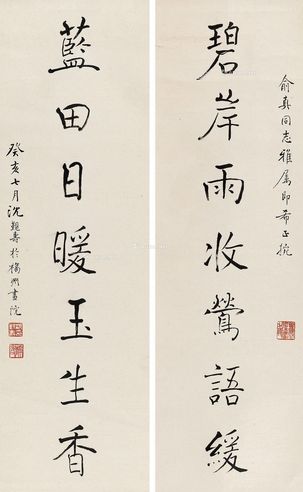 俞真同志雅属即希正挽
碧岸雨收鶯語緩
藍田日暖玉生香
癸亥七月沈觐寿於楊州畫院